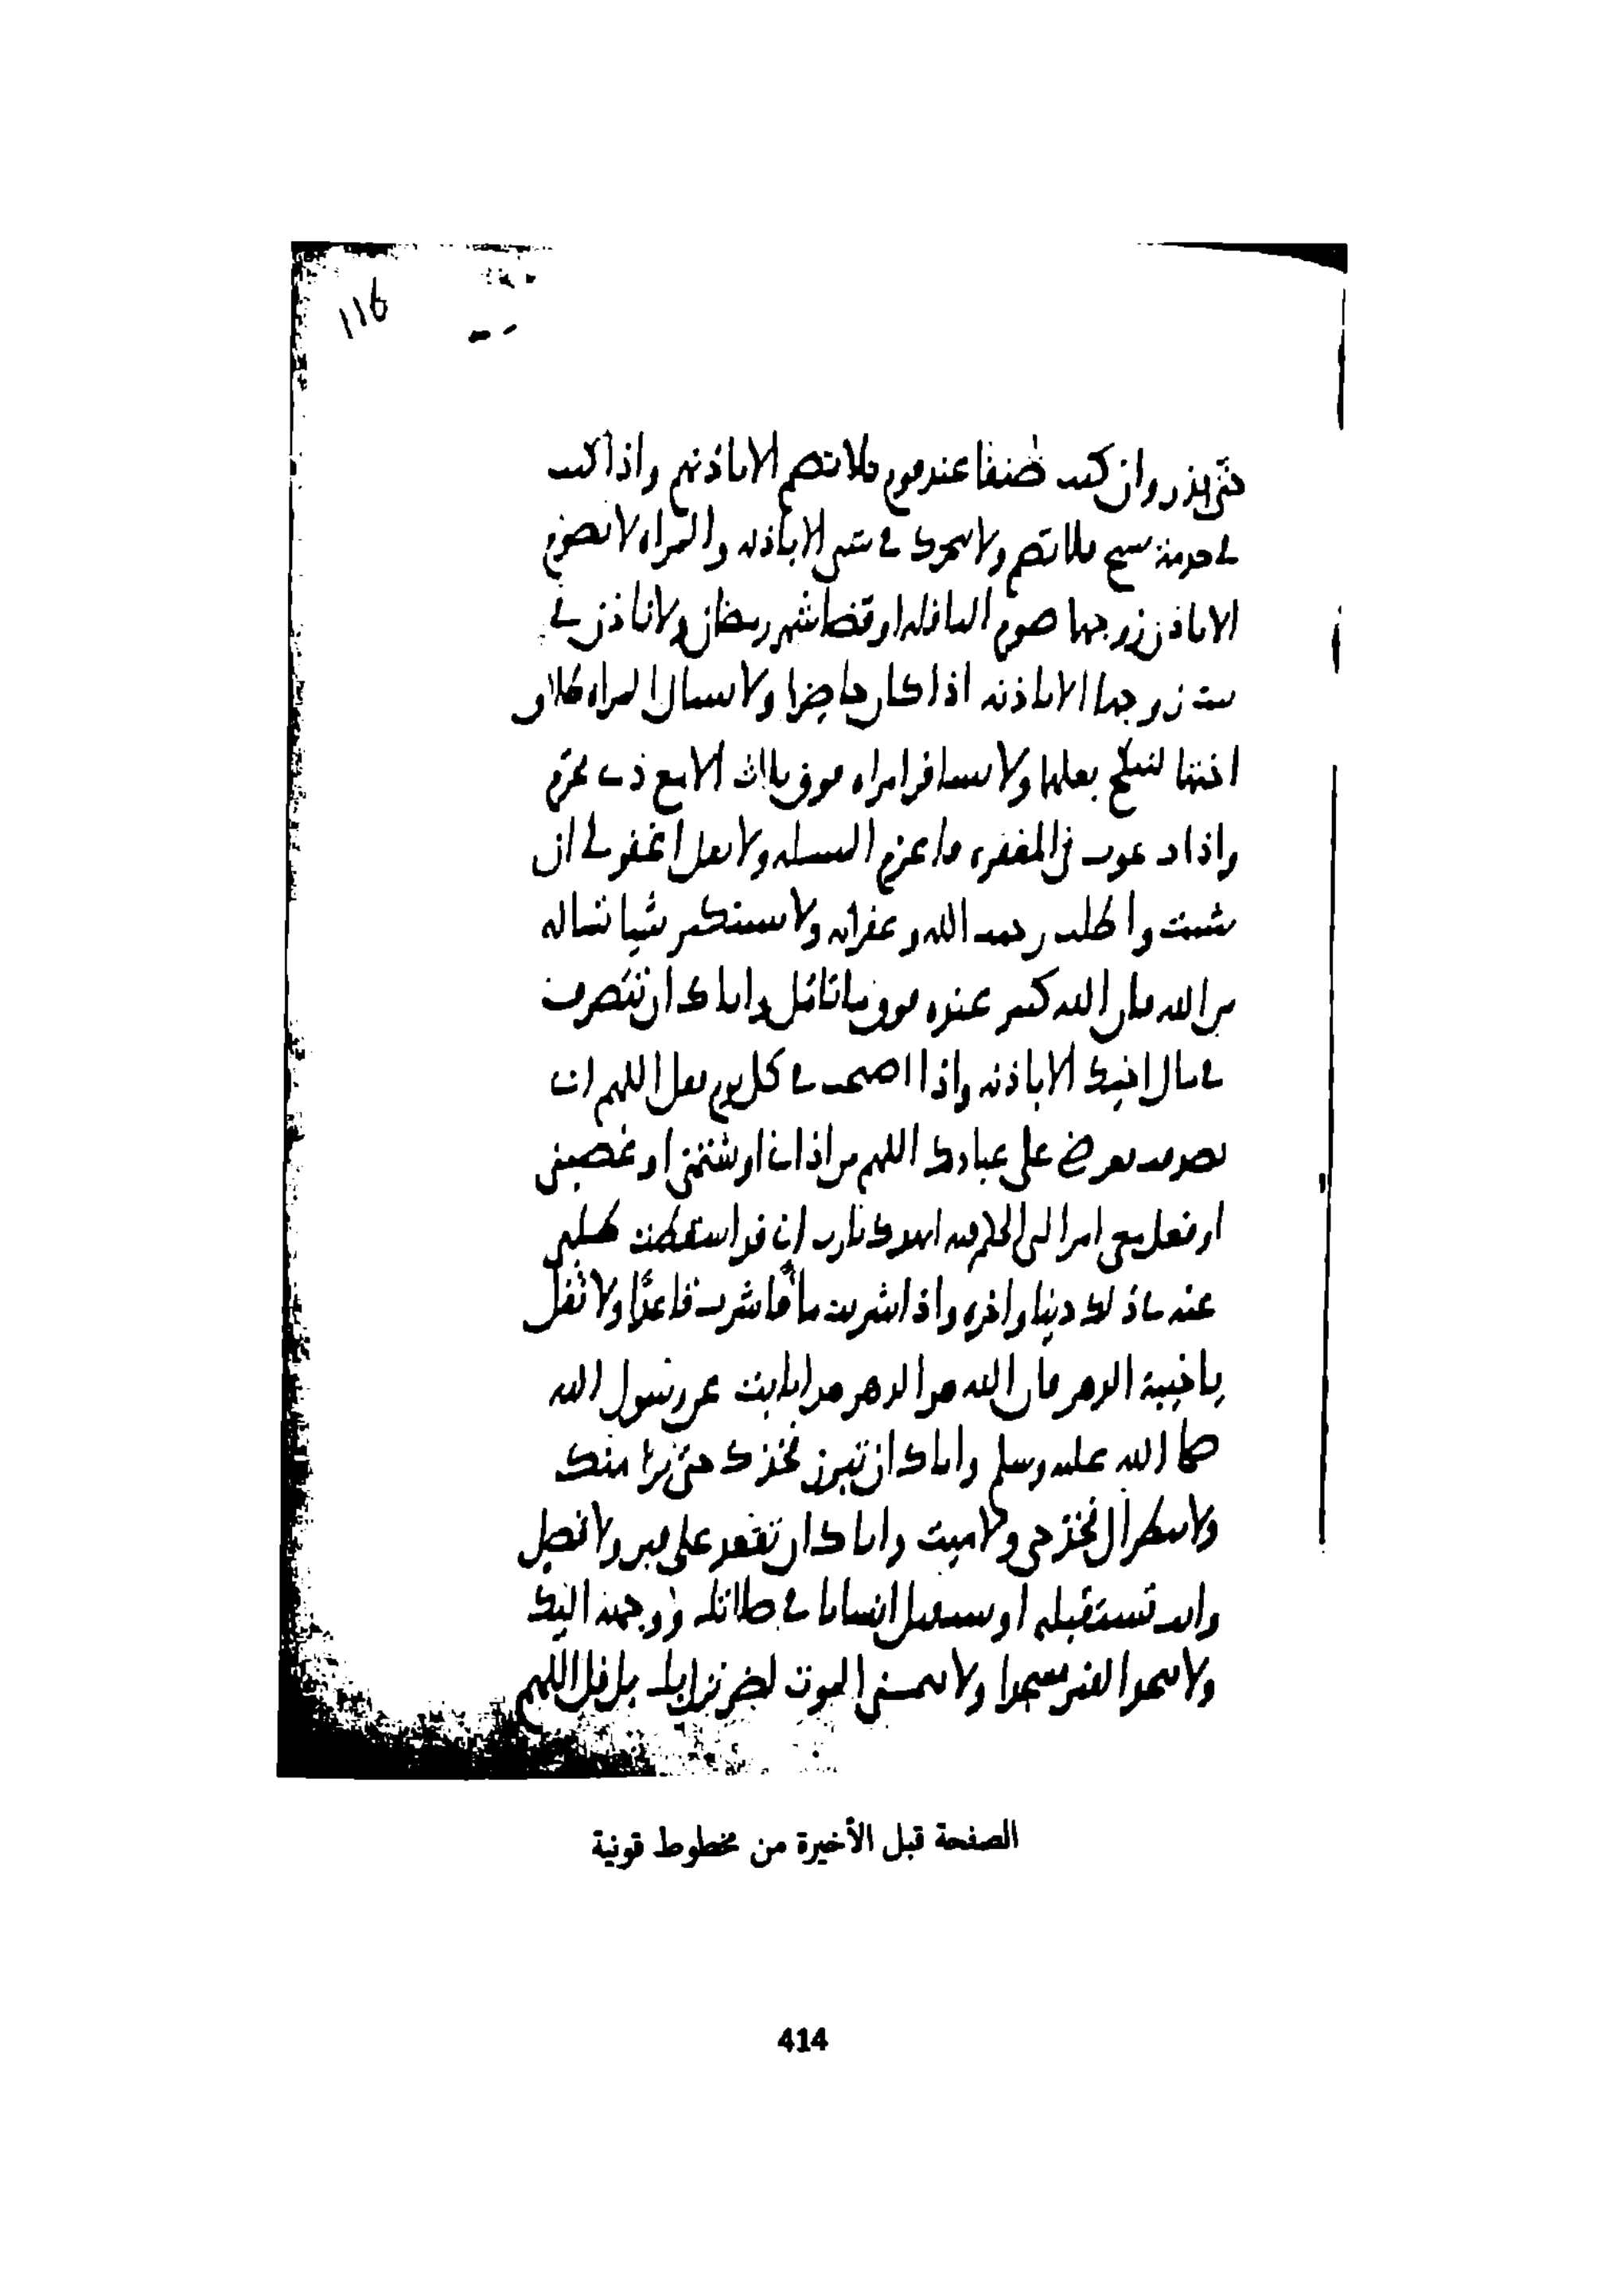 116
حتى يذر وان كنت ضيفا عند قوم فلا تصم الا باذنهم واذا كنت
في خدمة شيخ فلا تصم ولا تتحرك في شي الا باذنه والمراه لا تصوم
الا باذن زوجها صوم النافله او قضا شهر رمضان ولا تاذن في
بيت زوجها الا باذنه اذا كان حاضرا ولا تسال المراه طلاق
اختها لتنكح بعلها ولا تسافر امراه فوق ثلاث الا مع ذي محرم
واذا دعوت في المغفره فاعزم المسله ولا تقل اغفر لي ان
شيت واطلب رحمه الله وغفرانه ولا تستكثر شيا تساله
من الله فان الله كثير عنده فوق ما تامل واياك ان تتصرف
في مال اخيك الا باذنه واذا اصبحت في كل يوم فقل اللهم اني
تصدقت بعرضي على عبادك اللهم من اذاني او شتمني او غصبني
او فعل معي امرا الى الحكم فيه اشهدك يارب اني قد اسقطت طلبي
عنه في ذلك دينا واخره واذا شربت ما فاشرب قاعدا ولا تقل
ياخيبة الدهر فان الله هو الدهر هذا ثابت عن رسول الله
صلى الله عليه وسلم واياك ان تبرز فخذك حتى يرا منك
ولا تنظر الى فخذ حي ولا ميت واياك ان تقعد على قبر ولا تصل
وانت تستقبله او تستقبل انسانا في صلاتك ووجهه اليك
ولا تتخذوا القبر مسجدا ولا تتمنى الموت لضر نزل بك بل قل اللهم
الصفحة قبل الأخيرة من مخطوط قونية
414